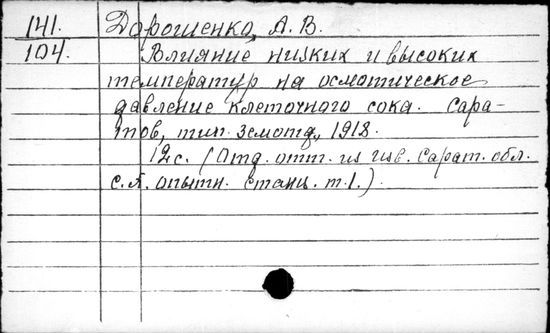 141. Дорошенко, А. В.
104. Влияние низких и высоких
температур на осмотическое
давление клеточного сока. Сара-
тов, тип. земотд., 1918.
12 с. (Отд. отт. из изв. Сарат. обл.
с.х. опытн. станц. т.1.)